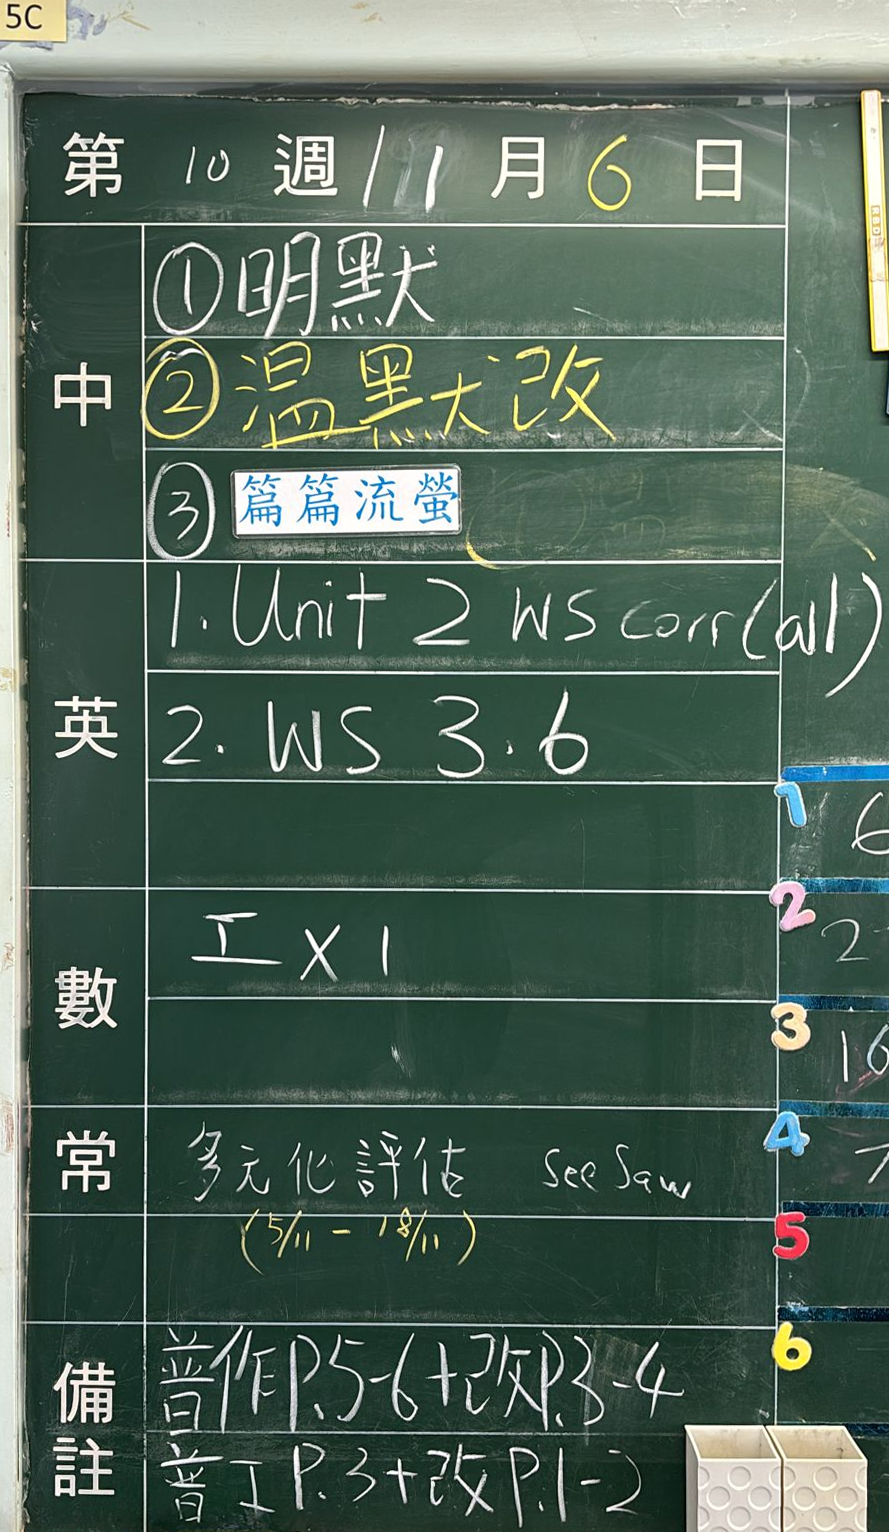 5C
第 10 週 11 月 6 日
中
① 明默
② 温默改
③ 篇篇流螢
英
1. Unit 2 WS corr (all)
2. WS 3.6
數
工 X 1
常
多元化評估 SeeSaw
(5/11 - 18/11)
備註
普作P.5-6+改P.3-4
普工P.3+改P.1-2
1 6
2 2
3 16
4
5
6